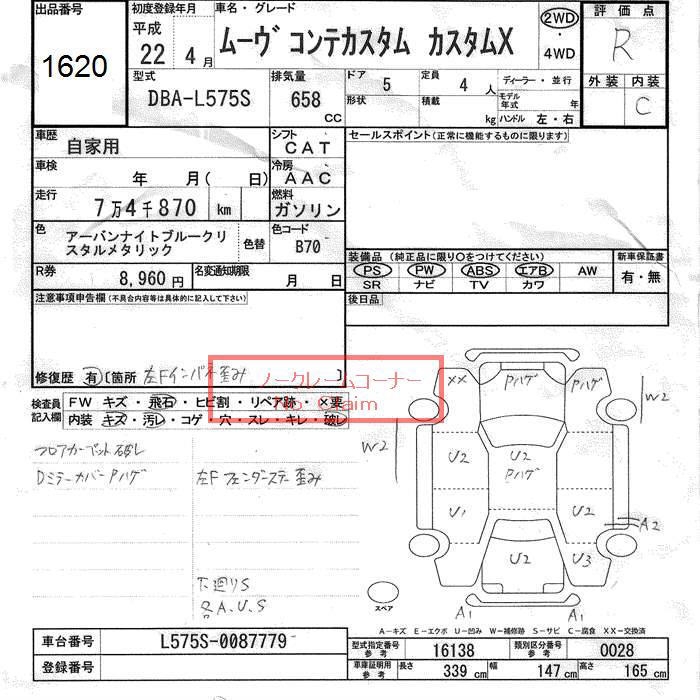 出品番号
1620
初度登録年月
平成
22 4月
車名・グレード
ムーヴ コンテカスタム カスタムX
2WD
・
4WD
評価点
R
外装 内装
C
型式
DBA-L575S
排気量
658
CC
ドア 5
定員 4 人
ディーラー・並行
形状
積載 kg
モデル年式 年
ハンドル 左・右
車歴
自家用
シフト
CAT
セールスポイント(正常に機能するものに限ります)
車検
年 月( 日)
冷房
AAC
走行
7万4千870 km
燃料
ガソリン
色
アーバンナイトブルークリ
スタルメタリック
色替
色コード
B70
装備品(純正品に限り○をつけてください)
PS PW ABS エアB AW
SR ナビ TV カワ
新車保証書
有・無
R券
8,960円
名変通知期限
月 日
後日品
注意事項申告欄(不具合内容等は具体的に記入して下さい)
修復歴 有 [箇所 左Fインパネ歪み ]
ノークレームコーナー
No Claim
検査員
記入欄
FW キズ・飛石・ヒビ割・リペア跡・×要
内装 キズ・汚レ・コゲ・穴・スレ・キレ・破レ
フロアカーペット破レ
DミラーカバーPハゲ
左Fフェンダーステー歪み
下廻りS
各A.U.S
XX Pハゲ Pハゲ
W2
W2
U2 U2 U2
Pハゲ
U1
A2
U2 U3
スペア
A1 A1
A-キズ E-エクボ U-凹み W-補修跡 S-サビ C-腐食 XX-交換済
車台番号
L575S-0087779
登録番号
型式指定番号
参考
16138
類別区分番号
参考
0028
車庫証明用
参考
長さ 339 cm
幅 147 cm
高さ 165 cm